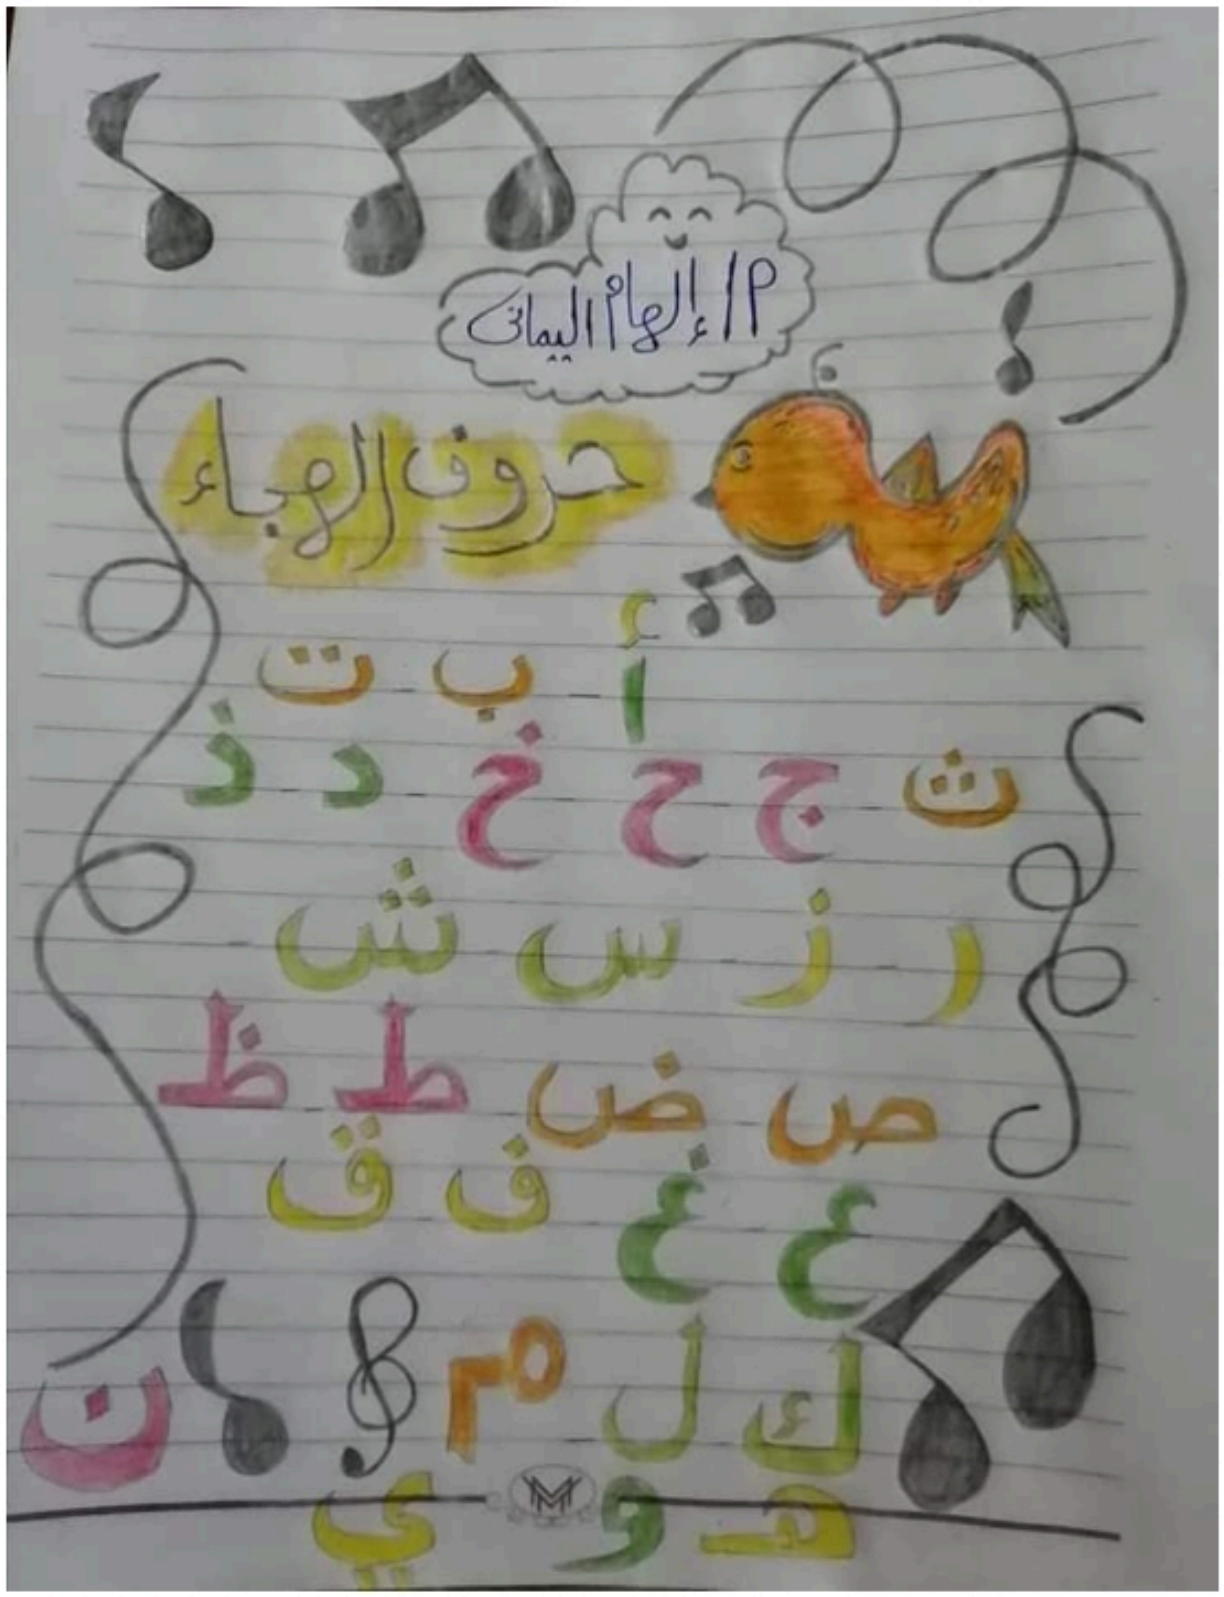 م/ إلهام اليمانى
حروف الهجاء
أ - ب - ت
ث - ج - ح - خ - د - ذ
ر - ز - س - ش -
ص - ض - ط - ظ
ع - غ - ف - ق
ك - ل - م ن
هـ و ي